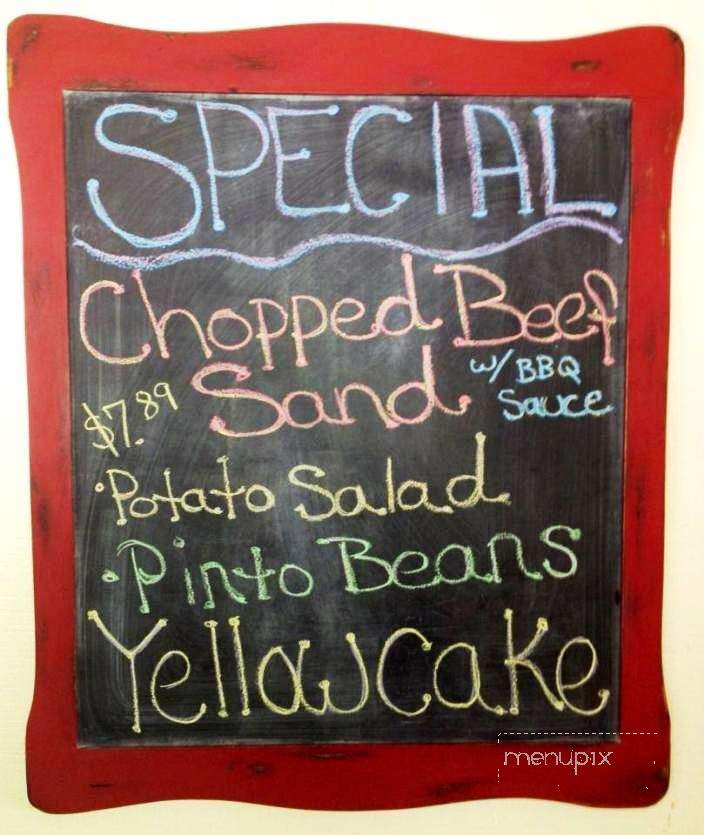 SPECIAL
Chopped Beef
Sand w/ BBQ
Sauce
$7.89
·Potato Salad
·Pinto Beans
Yellow Cake
menupix